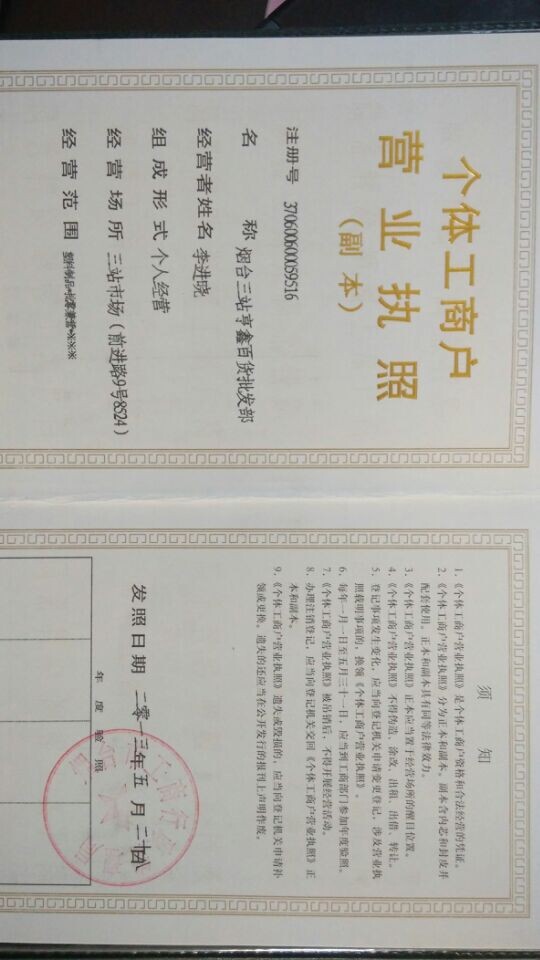 个体工商户
营业执照
（副本）
注册号 370600600059516
名称 烟台三站亨鑫百货批发部
经营者姓名 李进晓
组成形式 个人经营
经营场所 三站市场（前进路9号8524）
经营范围 塑料制品*批零兼营*※※※
须知
1．《个体工商户营业执照》是个体工商户资格和合法经营的凭证。
2．《个体工商户营业执照》分为正本和副本。副本含内芯和封皮并
配套使用。正本和副本具有同等法律效力。
3．《个体工商户营业执照》正本应当置于经营场所的醒目位置。
4．《个体工商户营业执照》不得伪造、涂改、出租、出借、转让。
5．登记事项发生变化，应当向登记机关申请变更登记，涉及营业执
照载明事项的，换领《个体工商户营业执照》。
6．每年一月一日至五月三十一日，应当到工商部门参加年度验照。
7．《个体工商户营业执照》被吊销后，不得开展经营活动。
8．办理注销登记，应当向登记机关交回《个体工商户营业执照》正
本和副本。
9．《个体工商户营业执照》遗失或毁损的，应当向登记机关申请补
领或更换。遗失的还应当在公开发行的报刊上声明作废。
发照日期 二零一三年五月二十四
年度验照